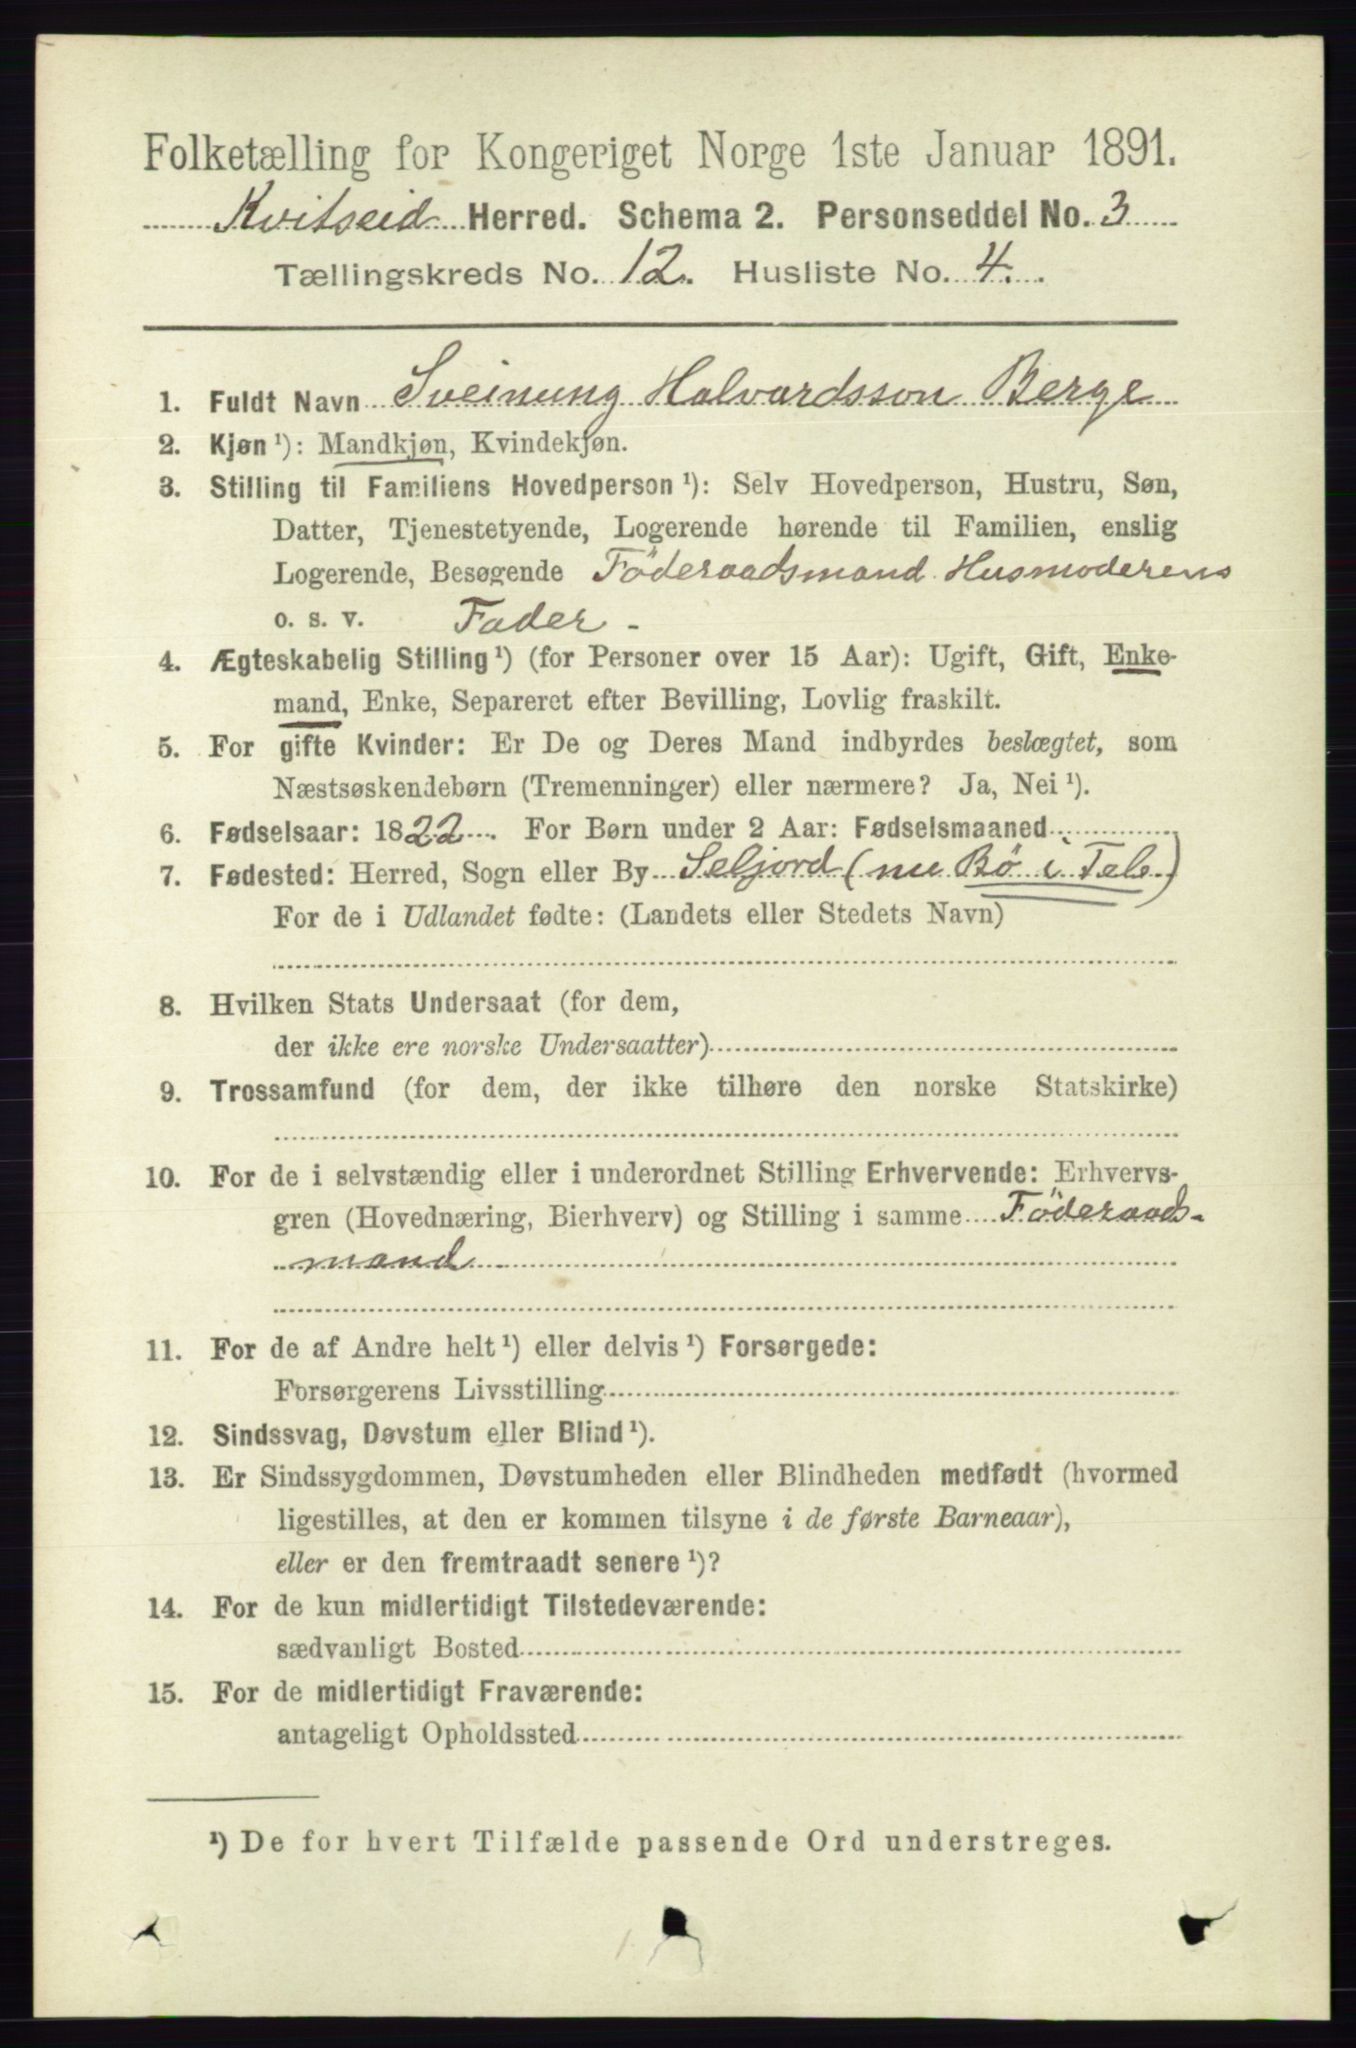 Folketælling for Kongeriget Norge 1ste Januar 1891.
Kvitseid Herred. Schema 2. Personseddel No. 3
Tællingskreds No. 12. Husliste No. 4.
1. Fuldt Navn Sveinung Halvardsson Berge
2. Kjøn ¹): Mandkjøn, Kvindekjøn.
3. Stilling til Familiens Hovedperson ¹): Selv Hovedperson, Hustru, Søn,
Datter, Tjenestetyende, Logerende hørende til Familien, enslig
Logerende, Besøgende Föderaadsmand. Husmoderens
o. s. v. Fader -
4. Ægteskabelig Stilling ¹) (for Personer over 15 Aar): Ugift, Gift, Enke-
mand, Enke, Separeret efter Bevilling, Lovlig fraskilt.
5. For gifte Kvinder: Er De og Deres Mand indbyrdes beslægtet, som
Næstsøskendebørn (Tremenninger) eller nærmere? Ja, Nei ¹).
6. Fødselsaar: 1822. For Børn under 2 Aar: Fødselsmaaned
7. Fødested: Herred, Sogn eller By Seljord (nu Bö i Tele.)
For de i Udlandet fødte: (Landets eller Stedets Navn)
8. Hvilken Stats Undersaat (for dem,
der ikke ere norske Undersaatter)
9. Trossamfund (for dem, der ikke tilhøre den norske Statskirke)
10. For de i selvstændig eller i underordnet Stilling Erhvervende: Erhvervs-
gren (Hovednæring, Bierhverv) og Stilling i samme Föderaads-
mand
11. For de af Andre helt ¹) eller delvis ¹) Forsørgede:
Forsørgerens Livsstilling
12. Sindssvag, Døvstum eller Blind ¹).
13. Er Sindssygdommen, Døvstumheden eller Blindheden medfødt (hvormed
ligestilles, at den er kommen tilsyne i de første Barneaar),
eller er den fremtraadt senere ¹)?
14. For de kun midlertidigt Tilstedeværende:
sædvanligt Bosted
15. For de midlertidigt Fraværende:
antageligt Opholdssted
¹) De for hvert Tilfælde passende Ord understreges.